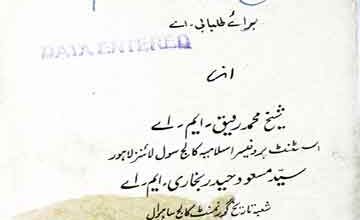 برائے طلبا بی۔ اے
DATA ENTERED
از
شیخ محمد رفیق۔ ایم۔ اے
اسسٹنٹ پروفیسر اسلامیہ کالج سول لائنز لاہور
سید مسعود حیدر بخاری۔ ایم۔ اے
شعبۂ تاریخ گورنمنٹ کالج ساہیوال